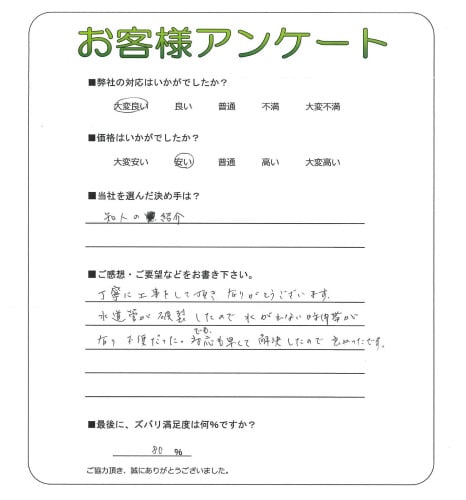 お客様アンケート
■弊社の対応はいかがでしたか？
大変良い 良い 普通 不満 大変不満
■価格はいかがでしたか？
大変安い 安い 普通 高い 大変高い
■当社を選んだ決め手は？
知人の 紹介
■ご感想・ご要望などをお書き下さい。
丁寧に工事をして頂き ありがとうございます.
水道管が破裂したので 水が出ない時間帯が
あり 不便だった。でも、対応も早くて 解決したので 良かったです.
■最後に、ズバリ満足度は何％ですか？
80 %
ご協力頂き、誠にありがとうございました。